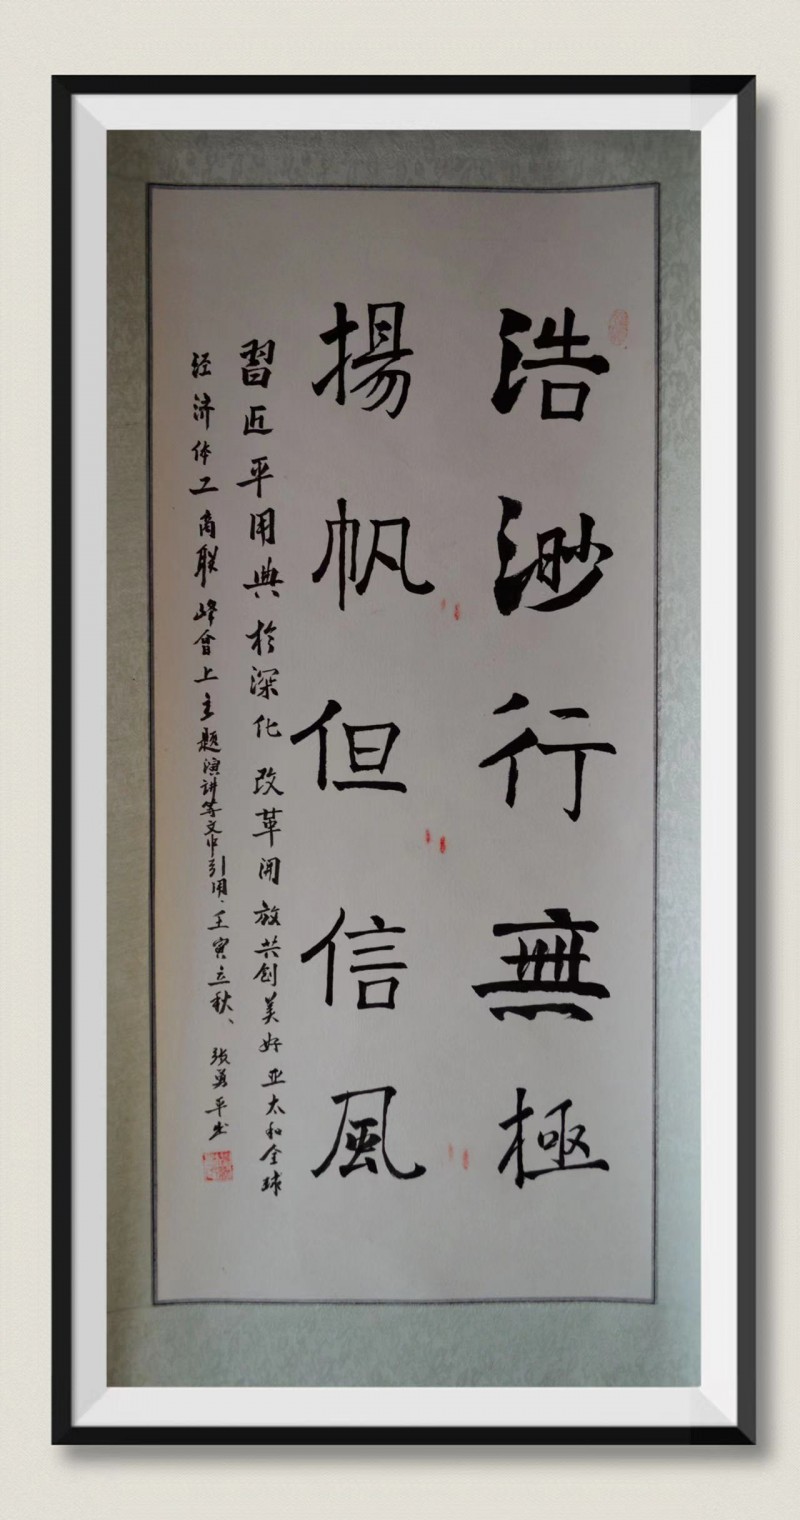 浩渺行無極
揚帆但信風
習近平用典於深化改革開放共创美好亚太和全球
经济体工商联峰會上主题演讲等文中引用、壬寅立秋、張勇平书